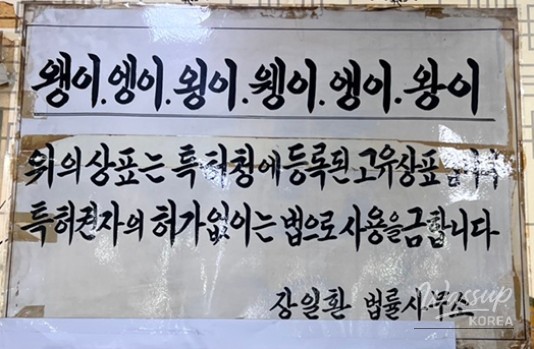 왱이.엥이.욍이.웽이.앵이.왕이
위의 상표는 특허청에 등록된 고유상표
특허권자의 허가없이는 법으로 사용을 금합니다
장일환 법률사무소
Wassup
KOREA